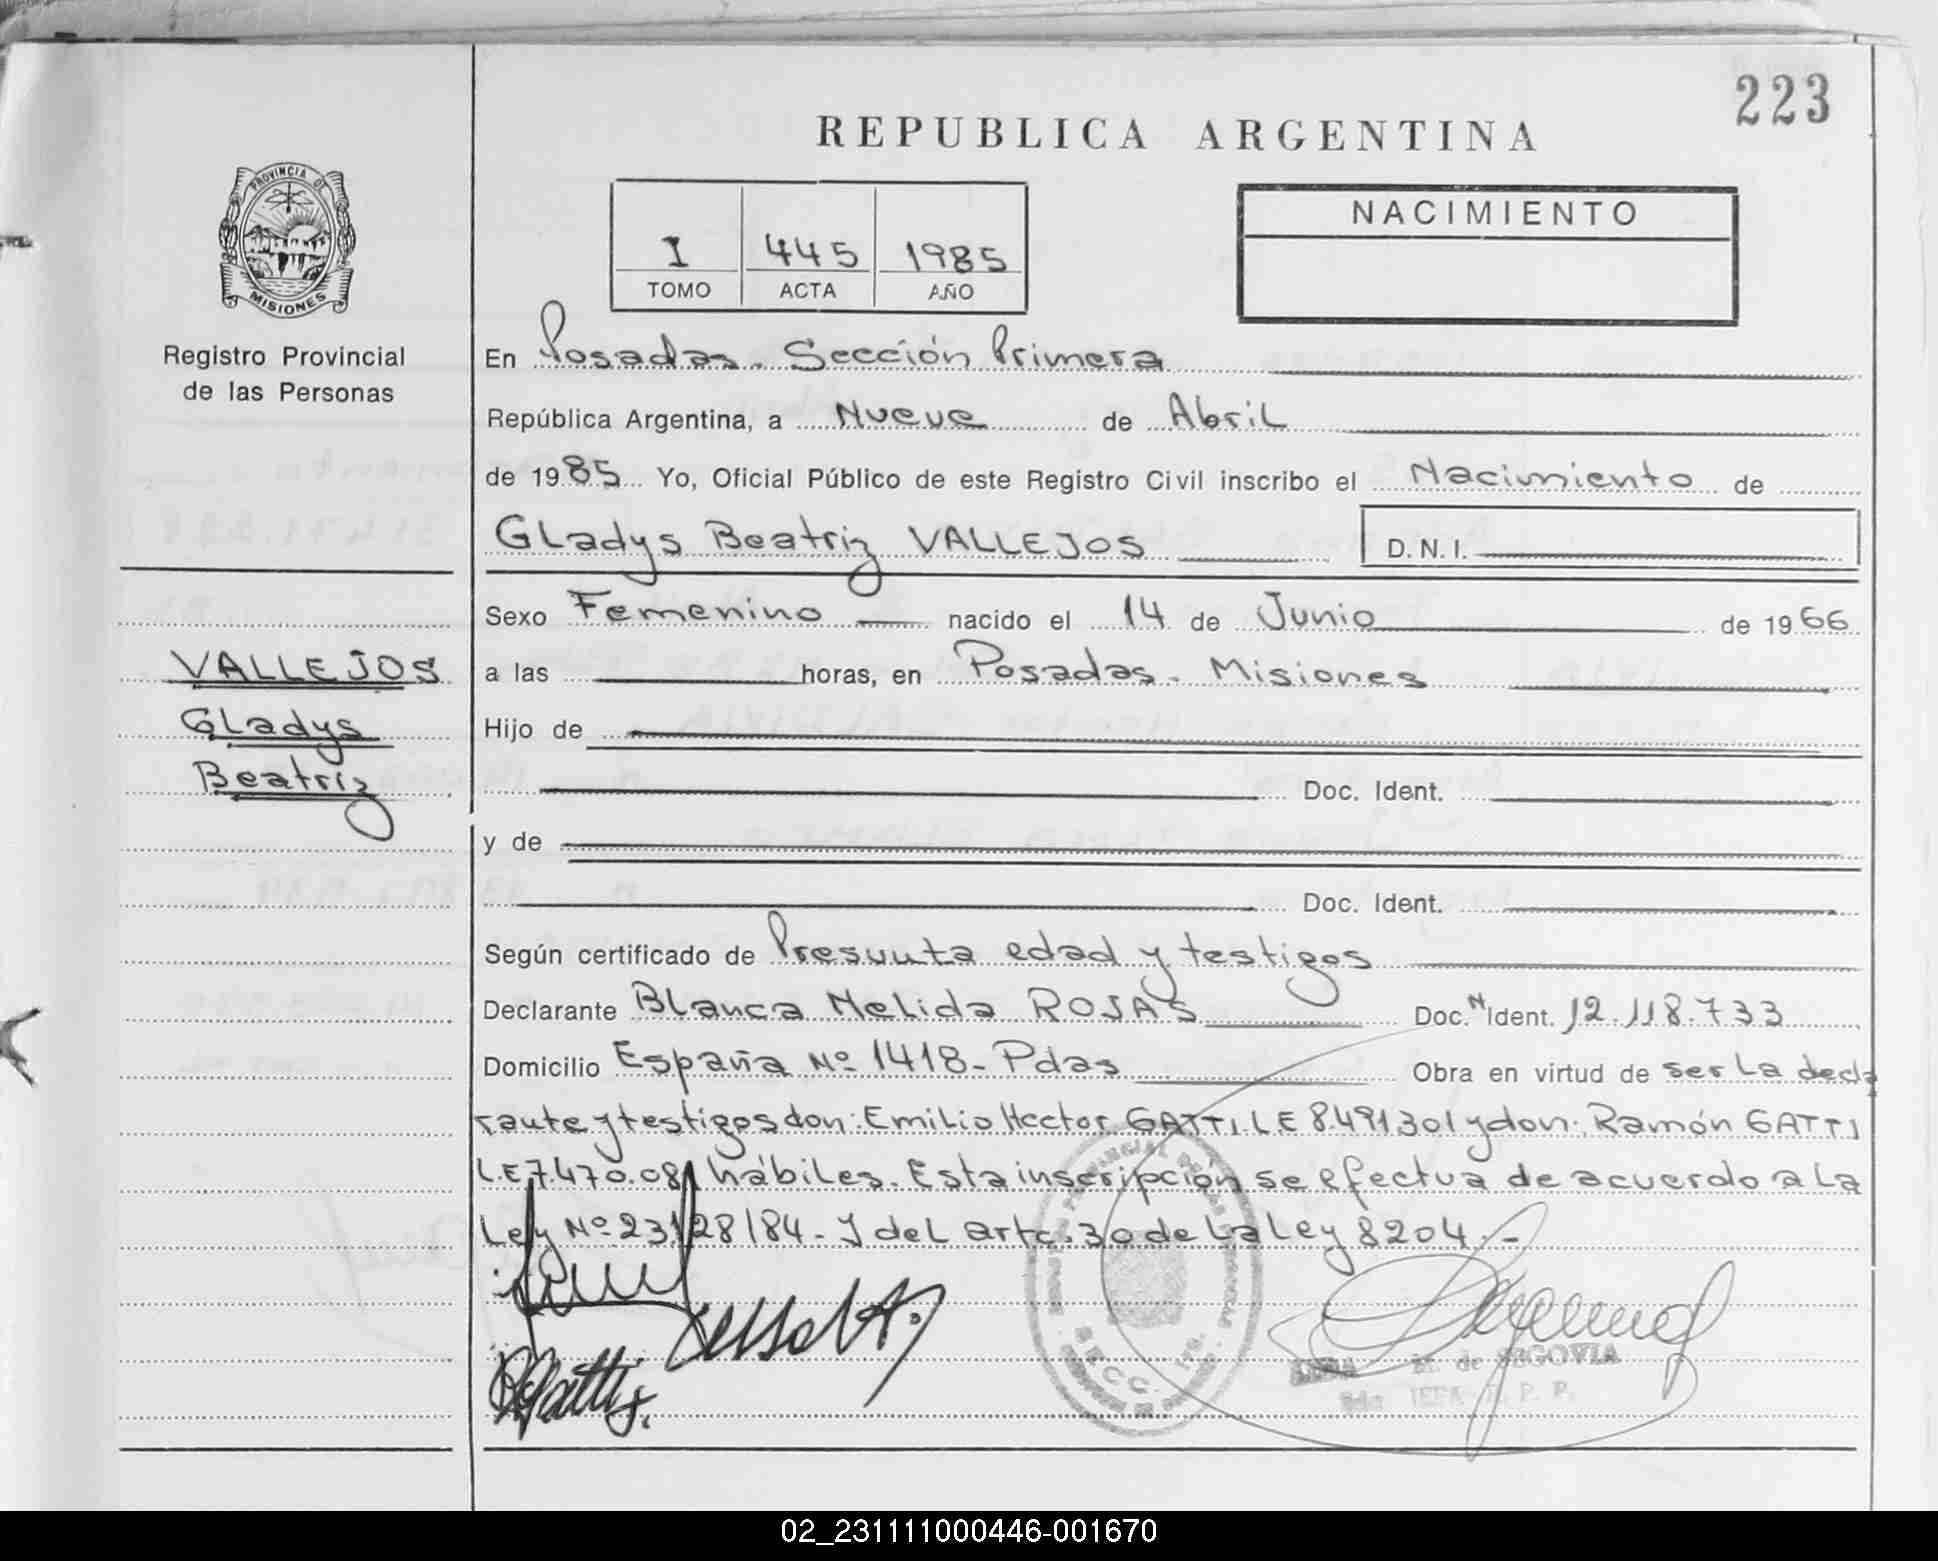 223
REPUBLICA ARGENTINA
PROVINCIA DE
MISIONES
Registro Provincial
de las Personas
I 445 1985
TOMO ACTA AÑO
NACIMIENTO
En Posadas. Sección Primera
República Argentina, a Nueve de Abril
de 1985 Yo, Oficial Público de este Registro Civil inscribo el Nacimiento de
Gladys Beatriz VALLEJOS D. N. I.
Sexo Femenino nacido el 14 de Junio de 1966
VALLEJOS
Gladys
Beatriz
a las horas, en Posadas. Misiones
Hijo de
Doc. Ident.
y de
Doc. Ident.
Según certificado de Presunta edad y testigos
Declarante Blanca Nelida ROJAS Doc. N Ident. 12.118.733
Domicilio España Nº 1418- Pdas Obra en virtud de ser la decla
rante y testigos don: Emilio Hector GATTI LE 8.491301 y don: Ramón GATTI
L.E 7.470.081 hábiles. Esta inscripción se efectua de acuerdo a la
Ley Nº 23128/84- y del artc. 30 de la Ley 8204.-
SECC. 1ra.
M. de SEGOVIA
02_231111000446-001670